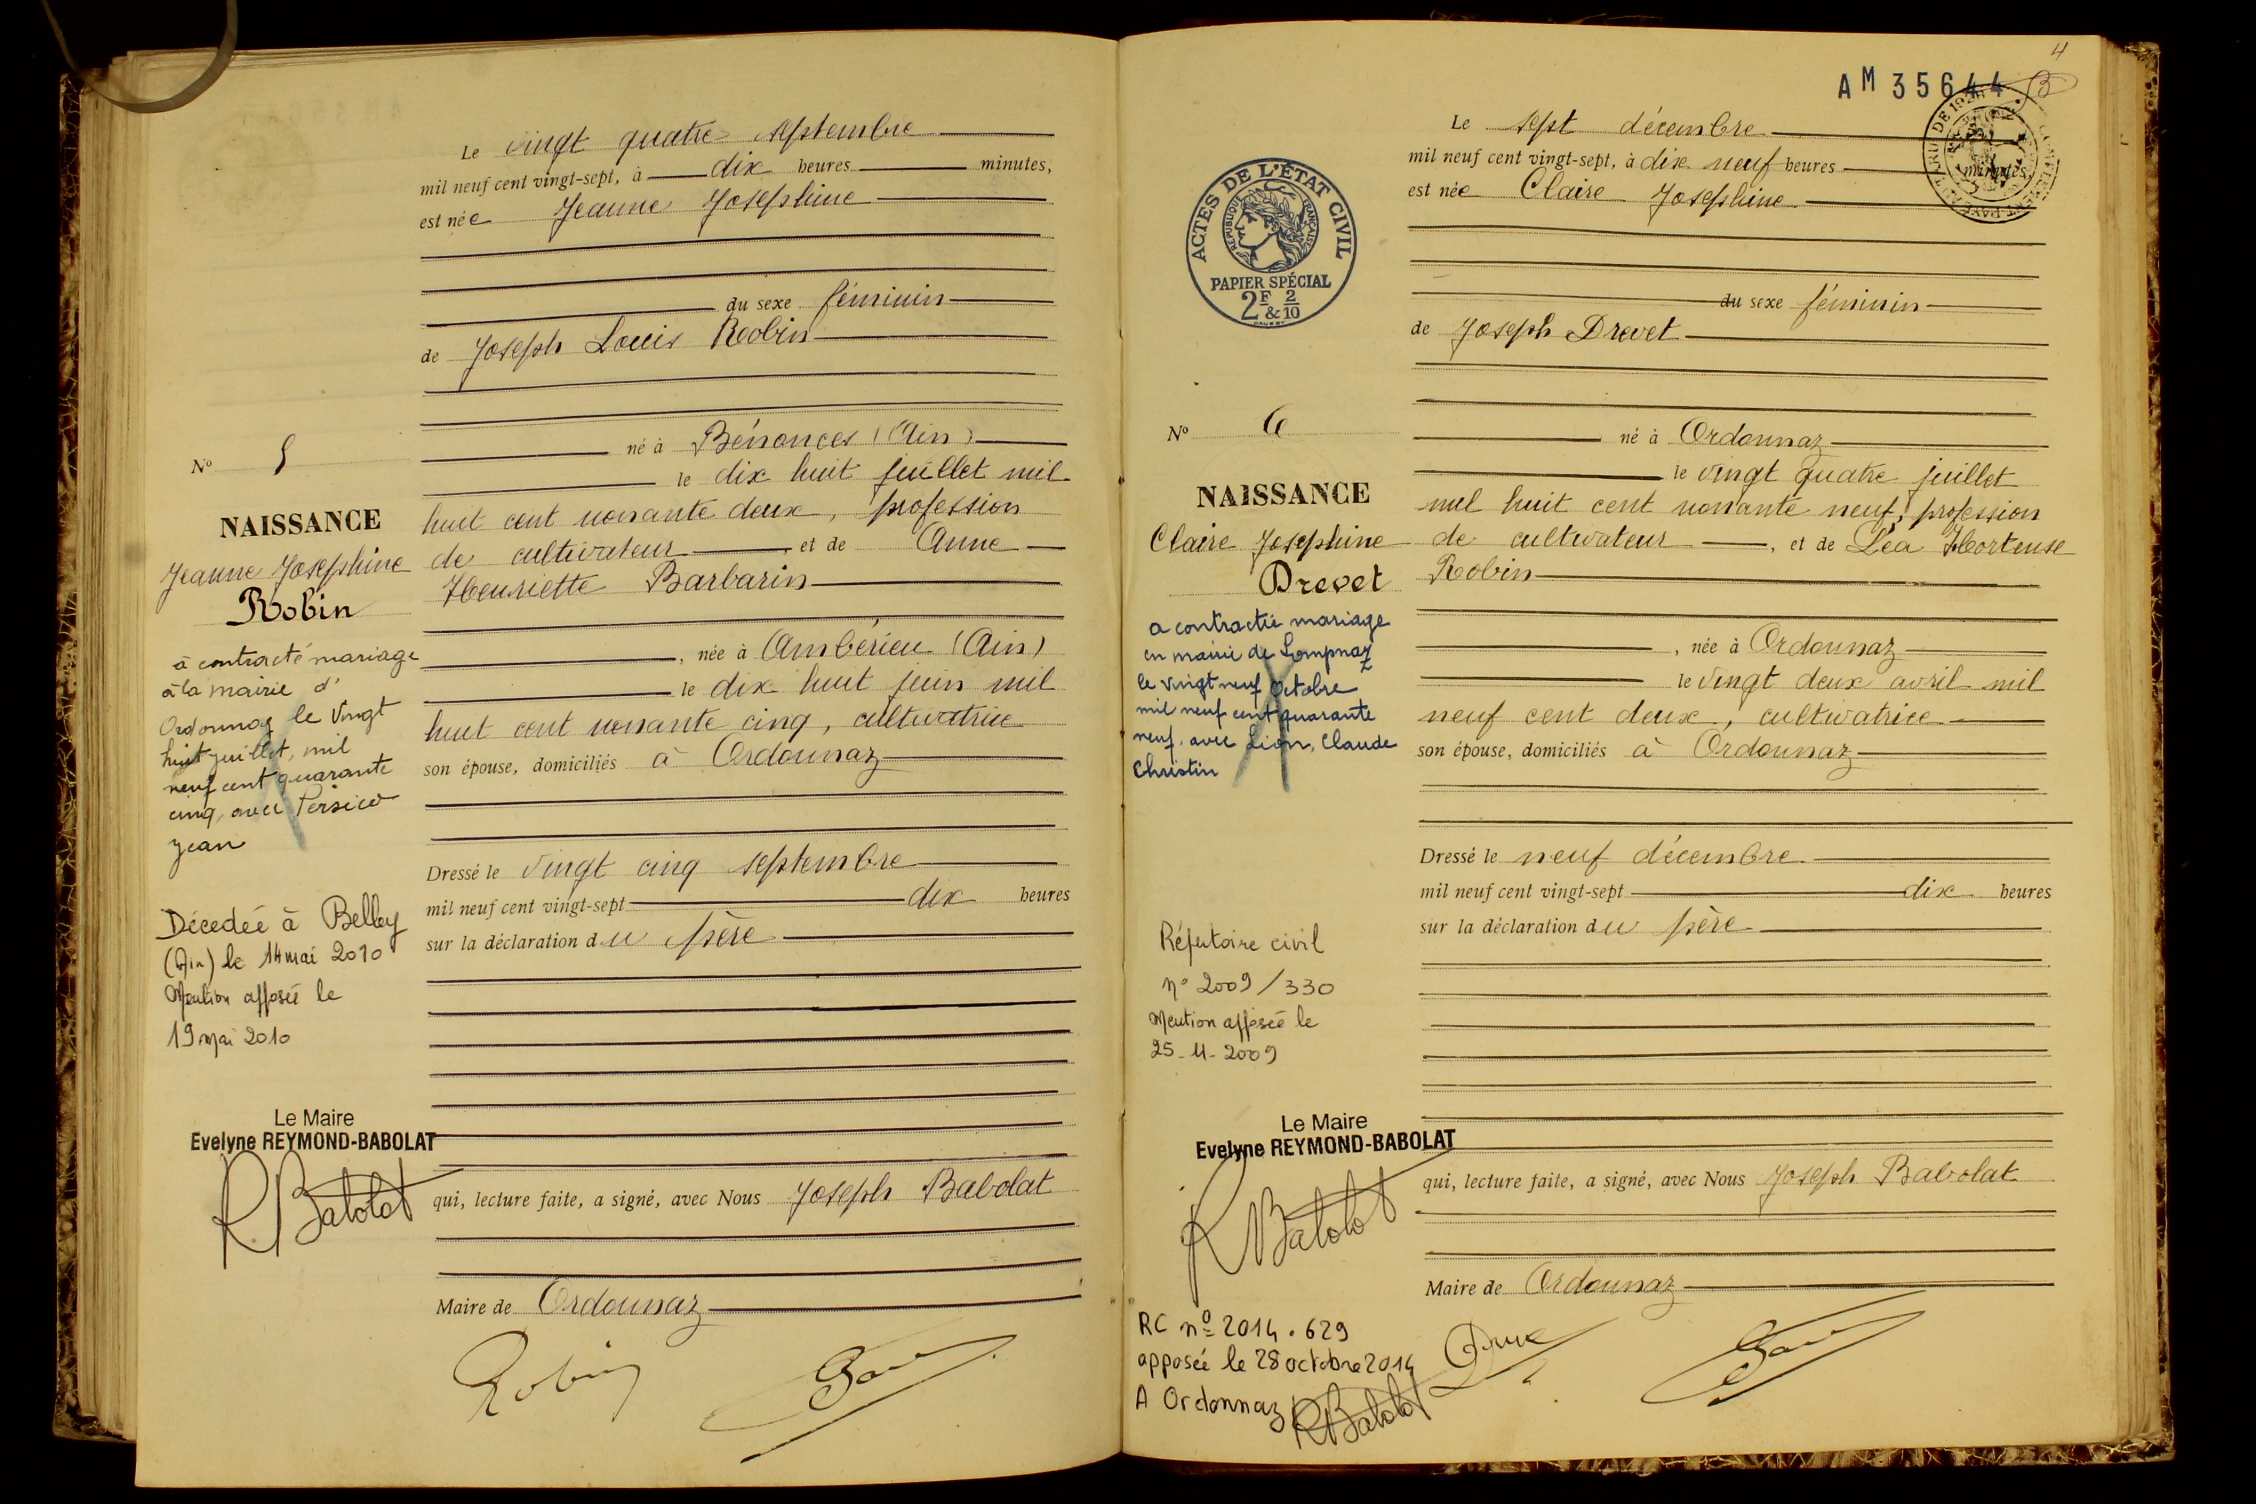 Le vingt quatre septembre
mil neuf cent vingt-sept, à dix heures minutes,
est née Jeanne Josephine
du sexe féminin
de Joseph Louis Robin
né à Bénonces (Ain)
le dix huit juillet mil
huit cent nonante deux, profession
de cultivateur, et de Anne
Henriette Barbarin
, née à Ambérieu (Ain)
le dix huit juin mil
huit cent nonante cinq, cultivatrice
son épouse, domiciliés à Ordonnaz
Dressé le vingt cinq septembre
mil neuf cent vingt-sept dix heures
sur la déclaration du père
qui, lecture faite, a signé, avec Nous Joseph Babolat
Maire de Ordonnaz
Robin
No 5
NAISSANCE
Jeanne Josephine
Robin
à contracté mariage
à la mairie d'
Ordonnaz le vingt
huit juillet, mil
neuf cent quarante
cinq, avec Persico
Jean
Décedée à Belley
(Ain) le 14 mai 2010
Mention apposée le
19 mai 2010
Le Maire
Evelyne REYMOND-BABOLAT
R.Babolat
4
AM 35644
ACTES DE L'ÉTAT CIVIL
RÉPUBLIQUE FRANÇAISE
PAPIER SPÉCIAL
2F & 2/10
Le sept décembre
mil neuf cent vingt-sept, à dix neuf heures minutes,
est née Claire Josephine
du sexe féminin
de Joseph Drevet
né à Ordonnaz
le vingt quatre juillet
mil huit cent nonante neuf, profession
de cultivateur, et de Léa Hortense
Robin
, née à Ordonnaz
le vingt deux avril mil
neuf cent deux, cultivatrice
son épouse, domiciliés à Ordonnaz
Dressé le neuf décembre
mil neuf cent vingt-sept dix heures
sur la déclaration du père
qui, lecture faite, a signé, avec Nous Joseph Babolat
Maire de Ordonnaz
No 6
NAISSANCE
Claire Josephine
Drevet
a contracté mariage
en mairie de Lompnaz
le vingt neuf octobre
mil neuf cent quarante
neuf, avec Lion, Claude
Christin
Répertoire civil
n° 2009/330
Mention apposée le
25-11-2009
Le Maire
Evelyne REYMOND-BABOLAT
R Babolat
RC nº 2014.629
apposée le 28 octobre 2014
A Ordonnaz R Babolat